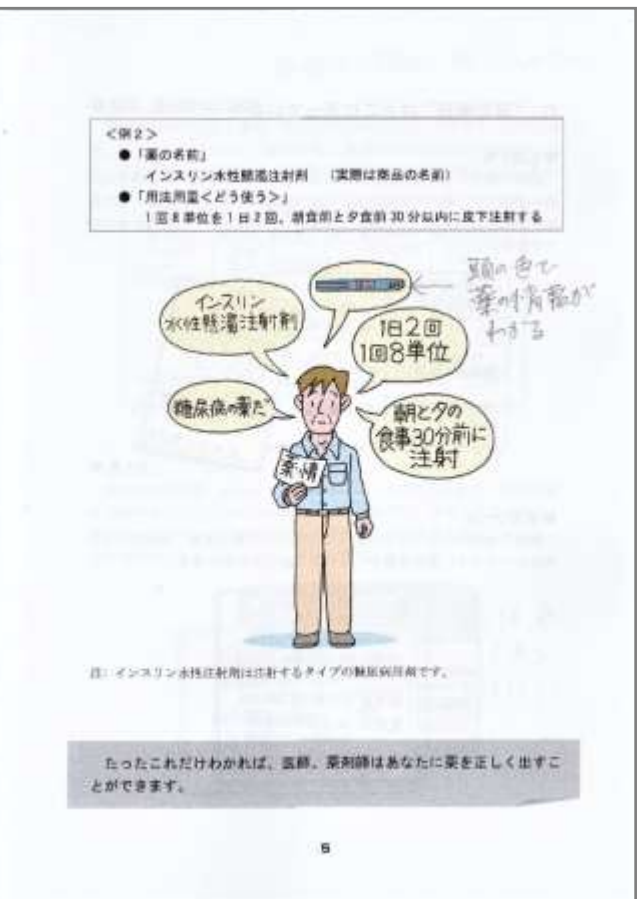 <例2>
●「薬の名前」
インスリン水性懸濁注射剤 (実際は商品の名前)
●「用法用量<どう使う>」
1回8単位を1日2回、朝食前と夕食前30分以内に皮下注射する
頭の色で
薬の情報が
わかる
インスリン
水性懸濁注射剤
1日2回
1回8単位
糖尿病の薬だ
朝と夕の
食事30分前に
注射
薬・情
注:インスリン水性注射剤は注射するタイプの糖尿病用剤です。
たったこれだけわかれば、医師、薬剤師はあなたに薬を正しく出すこ
とができます。
5